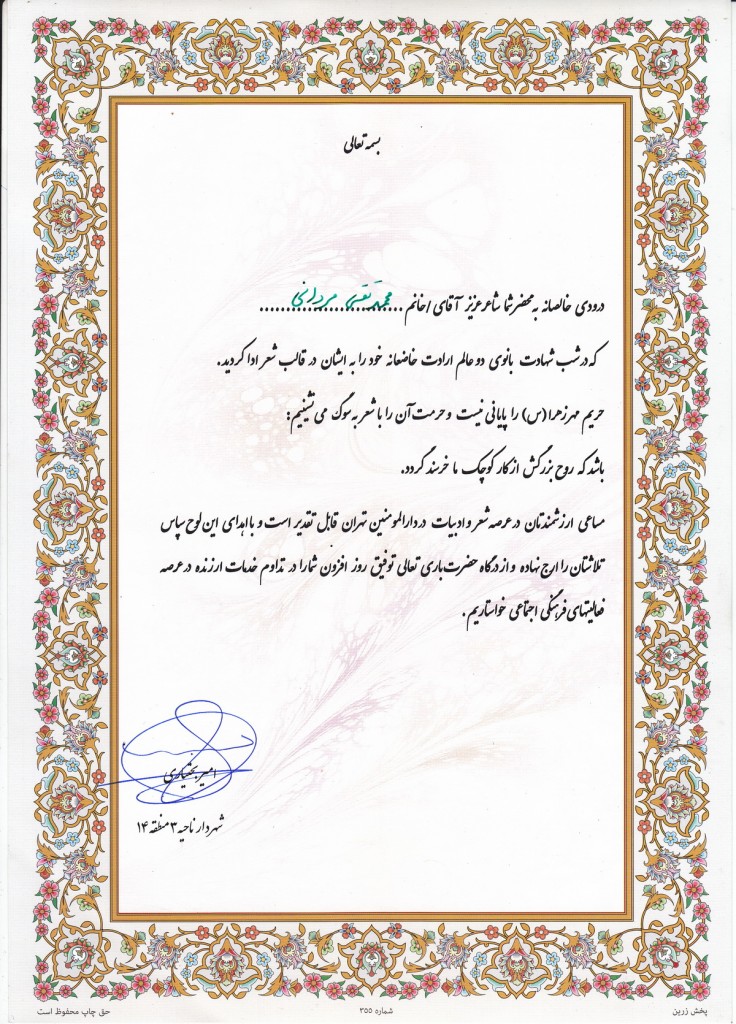 بسمه تعالی
درودی خالصانه به محضر شما شاعر عزیز آقای/خانم محمدتقی مردانی
که در شب شهادت بانوی دو عالم ارادت خاضعانه خود را به ایشان در قالب شعر ادا کردید.
حریم مهر زهرا (س) را پایانی نیست و حرمت آن را با شعر به سوگ می نشینیم:
باشد که روح بزرگش از کار کوچک ما خرسند گردد.
مساعی ارزشمندتان در عرصه شعر و ادبیات در دارالمومنین تهران قابل تقدیر است و با اهدای این لوح سپاس
تلاشتان را ارج نهاده و از درگاه حضرت باری تعالی توفیق روز افزون شما را در تداوم خدمات ارزنده در عرصه
فعالیتهای فرهنگی اجتماعی خواستاریم.
امیر بختیاری
شهردار ناحیه ۳ منطقه ۱۴
پخش زرین
شماره ۳۵۵
حق چاپ محفوظ است